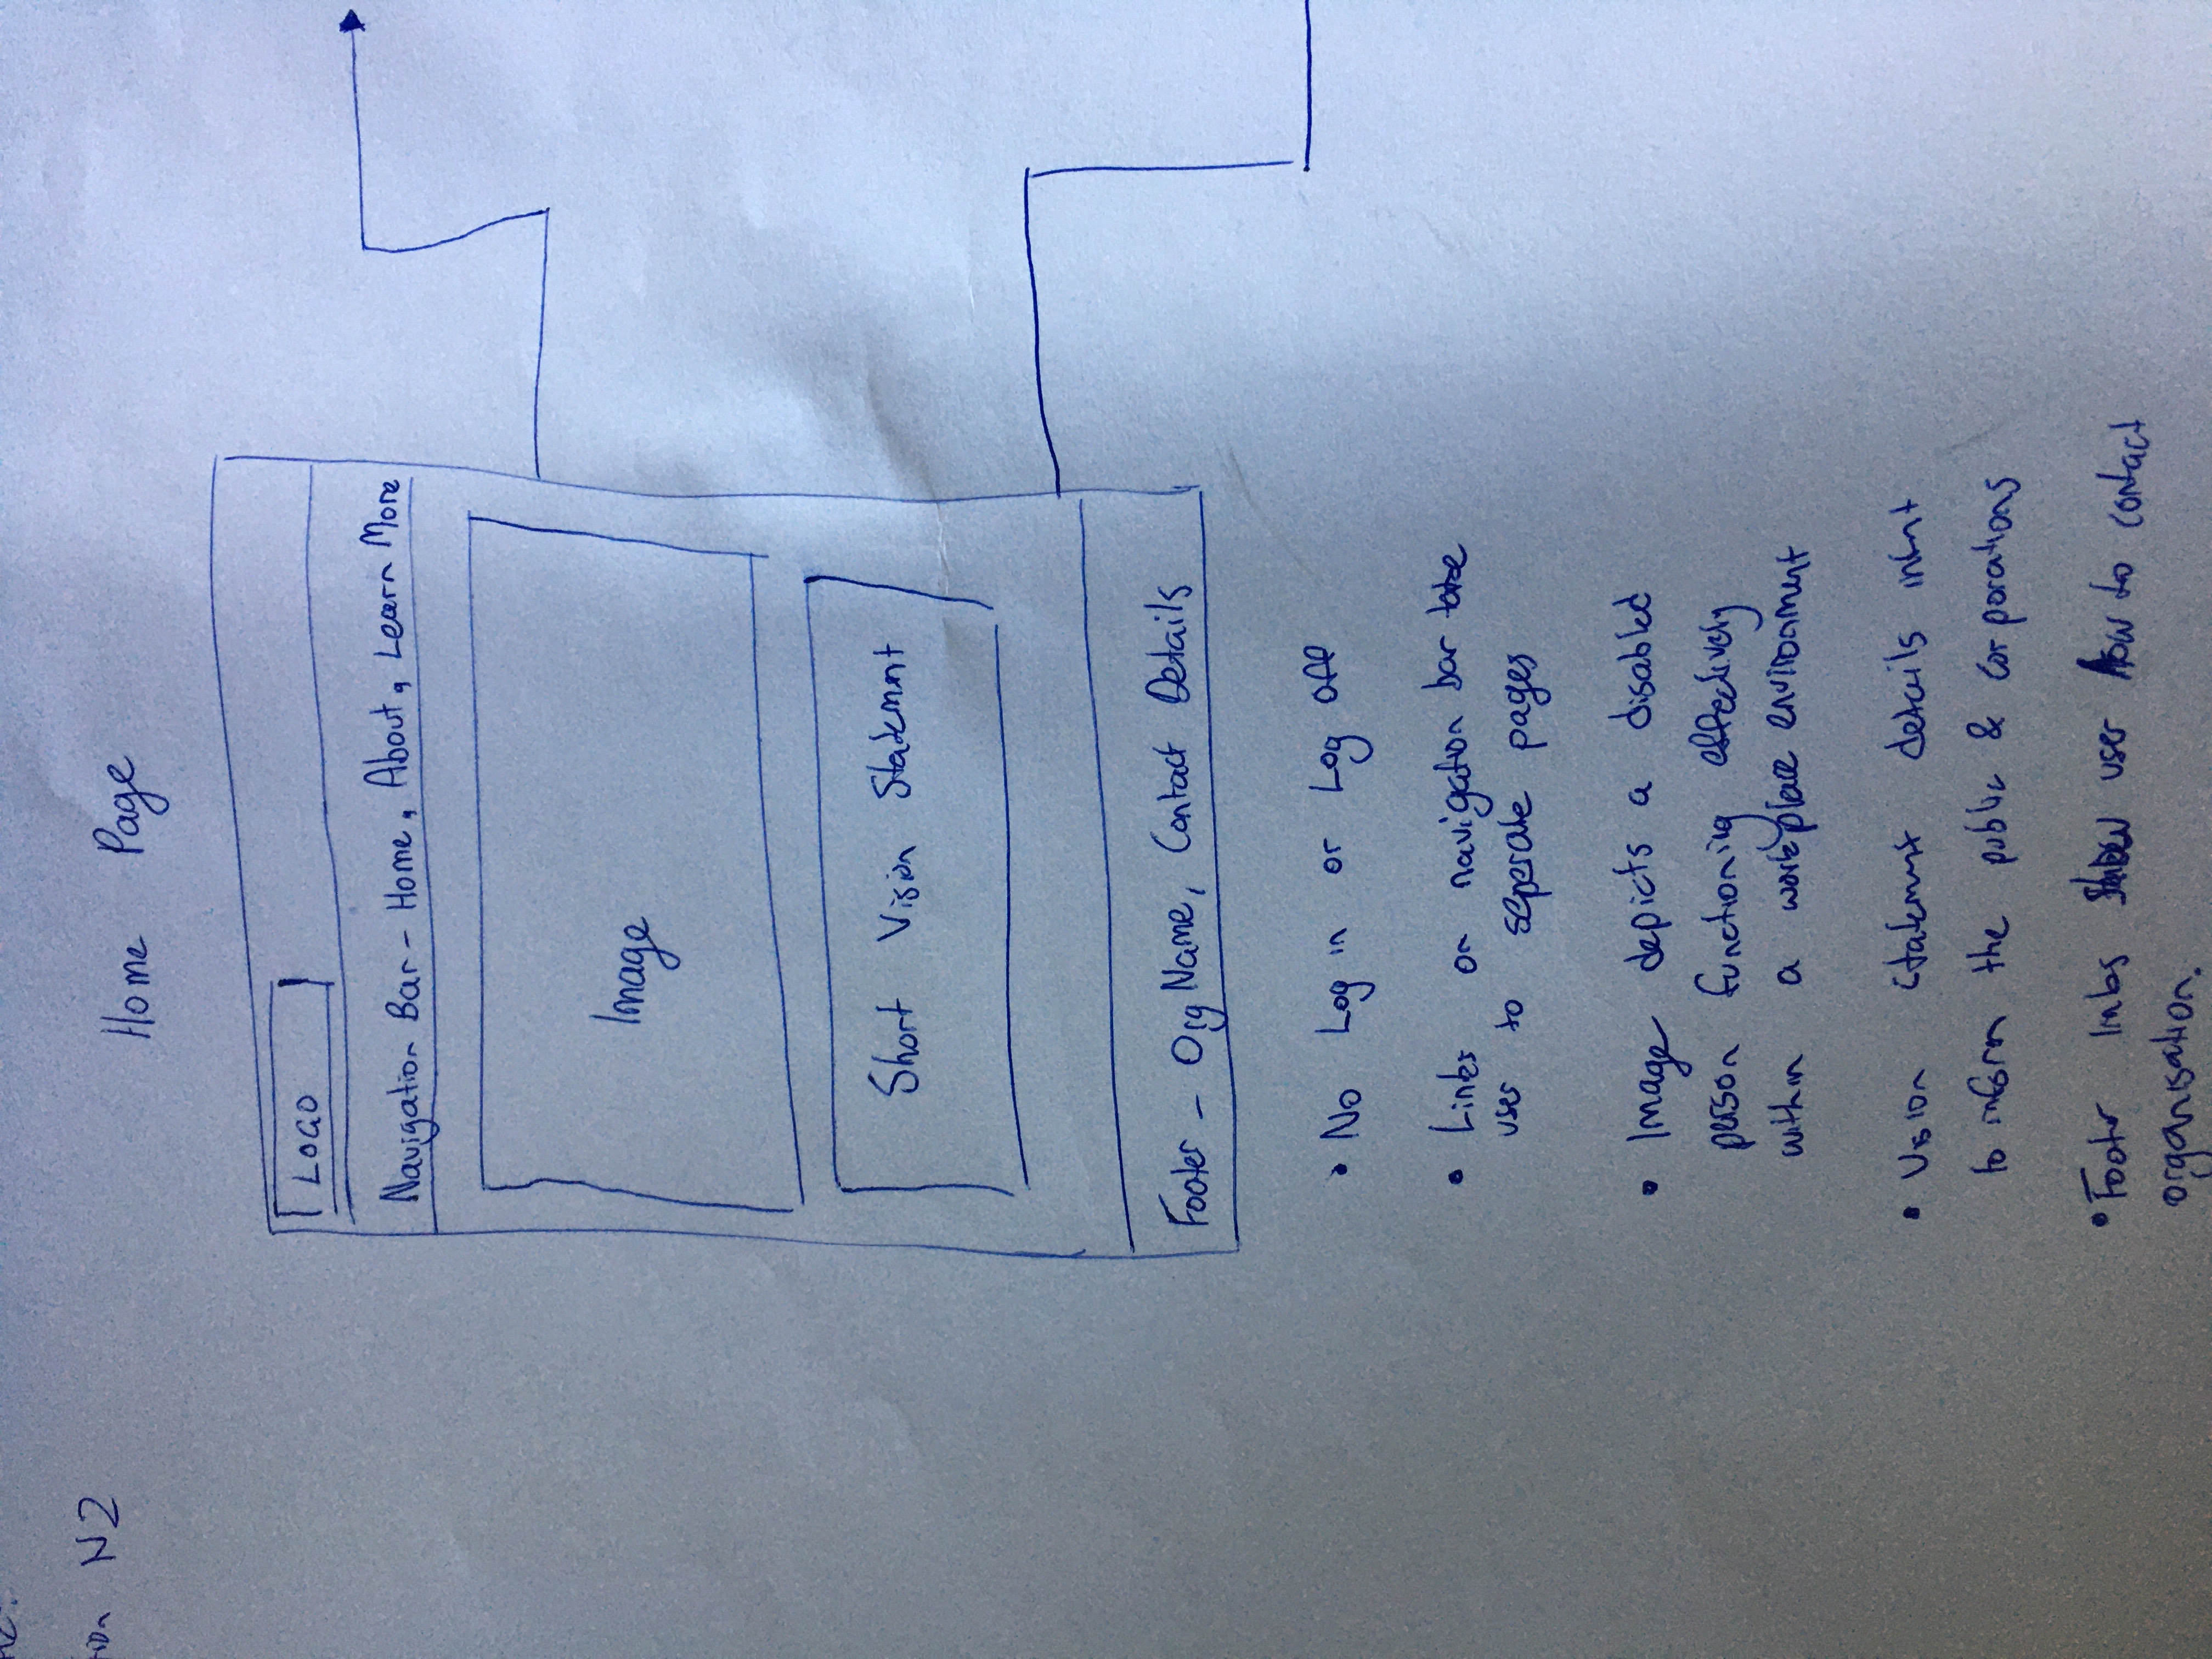 N2
Home Page
LOGO
Navigation Bar - Home, About, Learn More
Image
Short Vision Statement
Footer - Org Name, Contact Details
• No Log in or Log off
• Links on navigation bar take
user to seperate pages
• Image depicts a disabled
person functioning effectively
within a workplace environment
• Vision statement details intent
to inform the public & corporations
• Footer links show user how to contact
organisation.